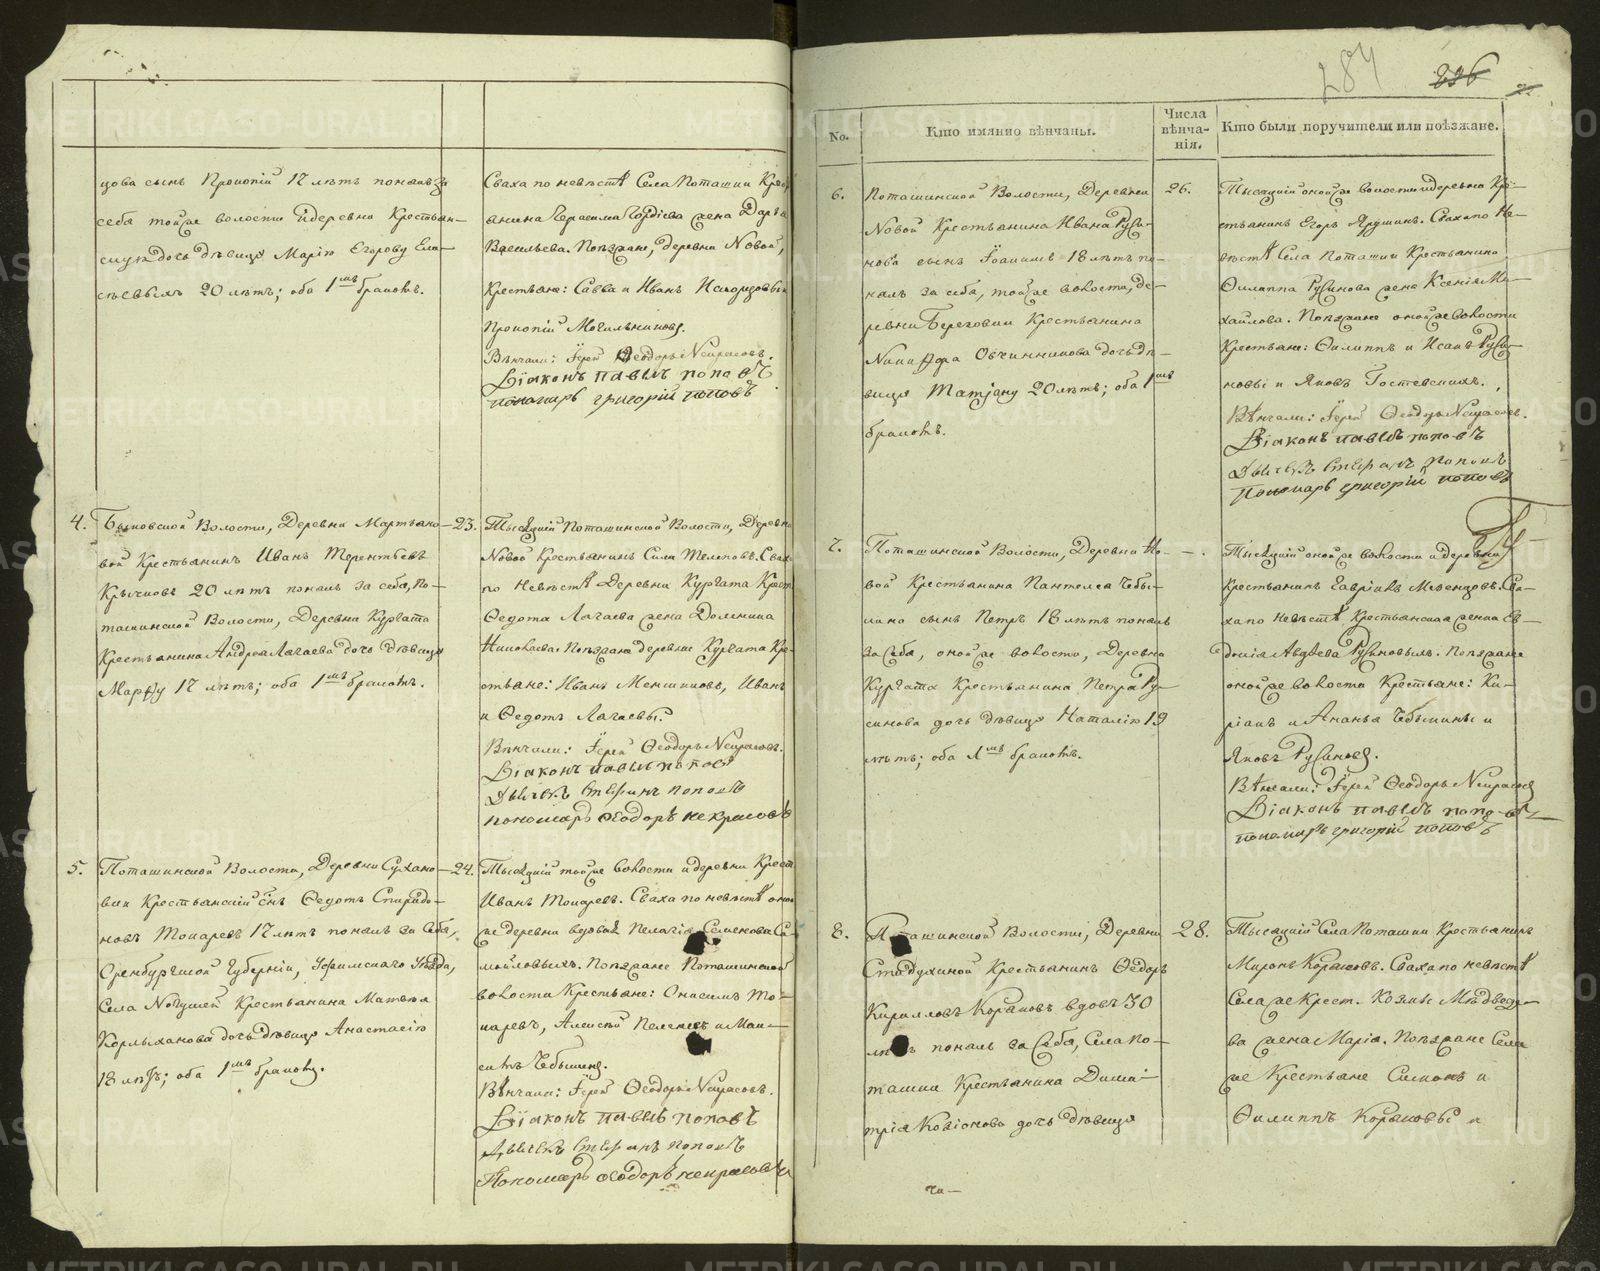 цова сынъ Прокопій 17 лѣтъ понялъ за
себя тойже волости и деревни Крестьян-
скую дочь дѣвицу Марію Егорову
20 лѣтъ; оба 1мъ бракомъ.
Сваха по невѣстѣ Села Поташки Крес
янина Герасима Гордѣева жена Дарья
Васильева. Поѣзжане, деревни Новой,
Крестьяне: Савва и Иванъ
Прокопій Могильниковы.
Вѣнчали: Іерей Ѳеодоръ Некрасовъ.
Діаконъ павелъ поповъ
пономарь григорій поповъ
4. Быковской Волости, Деревни Мартьяно-
вой Крестьянинъ Иванъ Терентьевъ
20 лѣтъ понялъ за себя, По-
ташинской Волости, Деревни Кургата
Крестьянина Андрея Лагаева дочь дѣвицу
Марѳу 17 лѣтъ; оба 1мъ бракомъ.
23.
Тысяцкій Поташинской Волости, Деревни
Новой Крестьянинъ Сила Телеповъ. Свах
по Невѣстѣ Деревни Кургата Крест
Ѳедота Лагаева жена Домнина
Николаева. Поѣзжане деревни Кургата Кре-
стьяне: Иванъ Меншиковъ, Иванъ
и Ѳедотъ Лагаевы.
Вѣнчали: Іерей Ѳеодоръ Некрасовъ.
Діаконъ павелъ поповъ
Дьячекъ Стефанъ Поповъ
пономарь Ѳеодоръ некрасовъ
5. Поташинской Волости, Деревни Сухано-
вки Крестьянскій сынъ Ѳедотъ Спиридо-
новъ Токаревъ 17 лѣтъ понялъ за Себя,
Оренбургской Губерніи, Уфимскаго Уѣзда,
Села Крестьянина Матвѣя
дочь дѣвицу Анастасію
18 лѣтъ; оба 1мъ бракомъ.
24.
Тысяцкій тойже волости и деревни Крест
Иванъ Токаревъ. Сваха по невѣстѣ оной
же деревни вдова Пелагія Семенова Са-
мойловыхъ. Поѣзжане Поташинской
волости Крестьяне: Онисимъ То-
каревъ, Алексѣй и Мак-
симъ Чебыкины.
Вѣнчали: Іерей Ѳеодоръ Некрасовъ.
Діаконъ павелъ поповъ
Дьячекъ Стефанъ Поповъ
Пономарь Ѳеодоръ некрасовъ
284
236
No.
Кто имянно вѣнчаны.
Числа
вѣнча-
нія.
Кто были поручители или поѣзжане.
6. Поташинской Волости, Деревни
Новой Крестьянина Ивана Руси-
нова сынъ Іоакимъ 18 лѣтъ по-
нялъ за себя, тойже волости, де-
ревни Береговки Крестьянина
Никифора Овчинникова дочь дѣ-
вицу Татіану 20 лѣтъ; оба 1мъ
бракомъ.
26.
Тысяцкій онойже волости и деревни Кре-
стьянинъ Егоръ Ярушинъ. Сваха по Не-
вѣстѣ Села Поташки Крестьянина
Филиппа Русинова жена Ксенія Ми-
хайлова. Поѣзжане онойже волости
Крестьяне: Филиппъ и Исакъ Руси-
новы и Яковъ Гостевскихъ.
Вѣнчали: Іерей Ѳеодоръ Некрасовъ.
Діаконъ павелъ поповъ
Дьячекъ Стефанъ Поповъ
Пономарь григорій поповъ
7. Поташинской Волости, Деревни Но-
вой Крестьянина Пантелея Чебы-
кина сынъ Петръ 18 лѣтъ понялъ
за себя, онойже волости, Деревни
Кургата Крестьянина Петра Ру-
синова дочь дѣвицу Наталію 19
лѣтъ; оба 1мъ бракомъ.
Тысяцкій онойже волости и деревни
Крестьянинъ Гаврилъ Мезенцовъ. Сва-
ха по Невѣстѣ Крестьянская жена Ев-
докія Авдѣева Русиновыхъ. Поѣзжане
онойже волости Крестьяне: Ки-
ріакъ и Ананья Чебыкины и
Яковъ Русиновы.
Вѣнчали: Іерей Ѳеодоръ Некрасовъ
Діаконъ павелъ поповъ
пономарь григорій поповъ
8. Поташинской Волости, Деревни
Стадухиной Крестьянинъ Ѳедоръ
Кирилловъ Коряковъ вдовъ 30
лѣтъ понялъ за Себя, Села По-
ташки Крестьянина Дими-
трія дочь дѣвицу
28.
Тысяцкій Села Поташки Крестьянинъ
Миронъ Коряковъ. Сваха по невѣстѣ
Села же Крест. Козмы Медведе-
ва жена Марія. Поѣзжане Села
же Крестьяне Симонъ и
Филиппъ Коряковы и